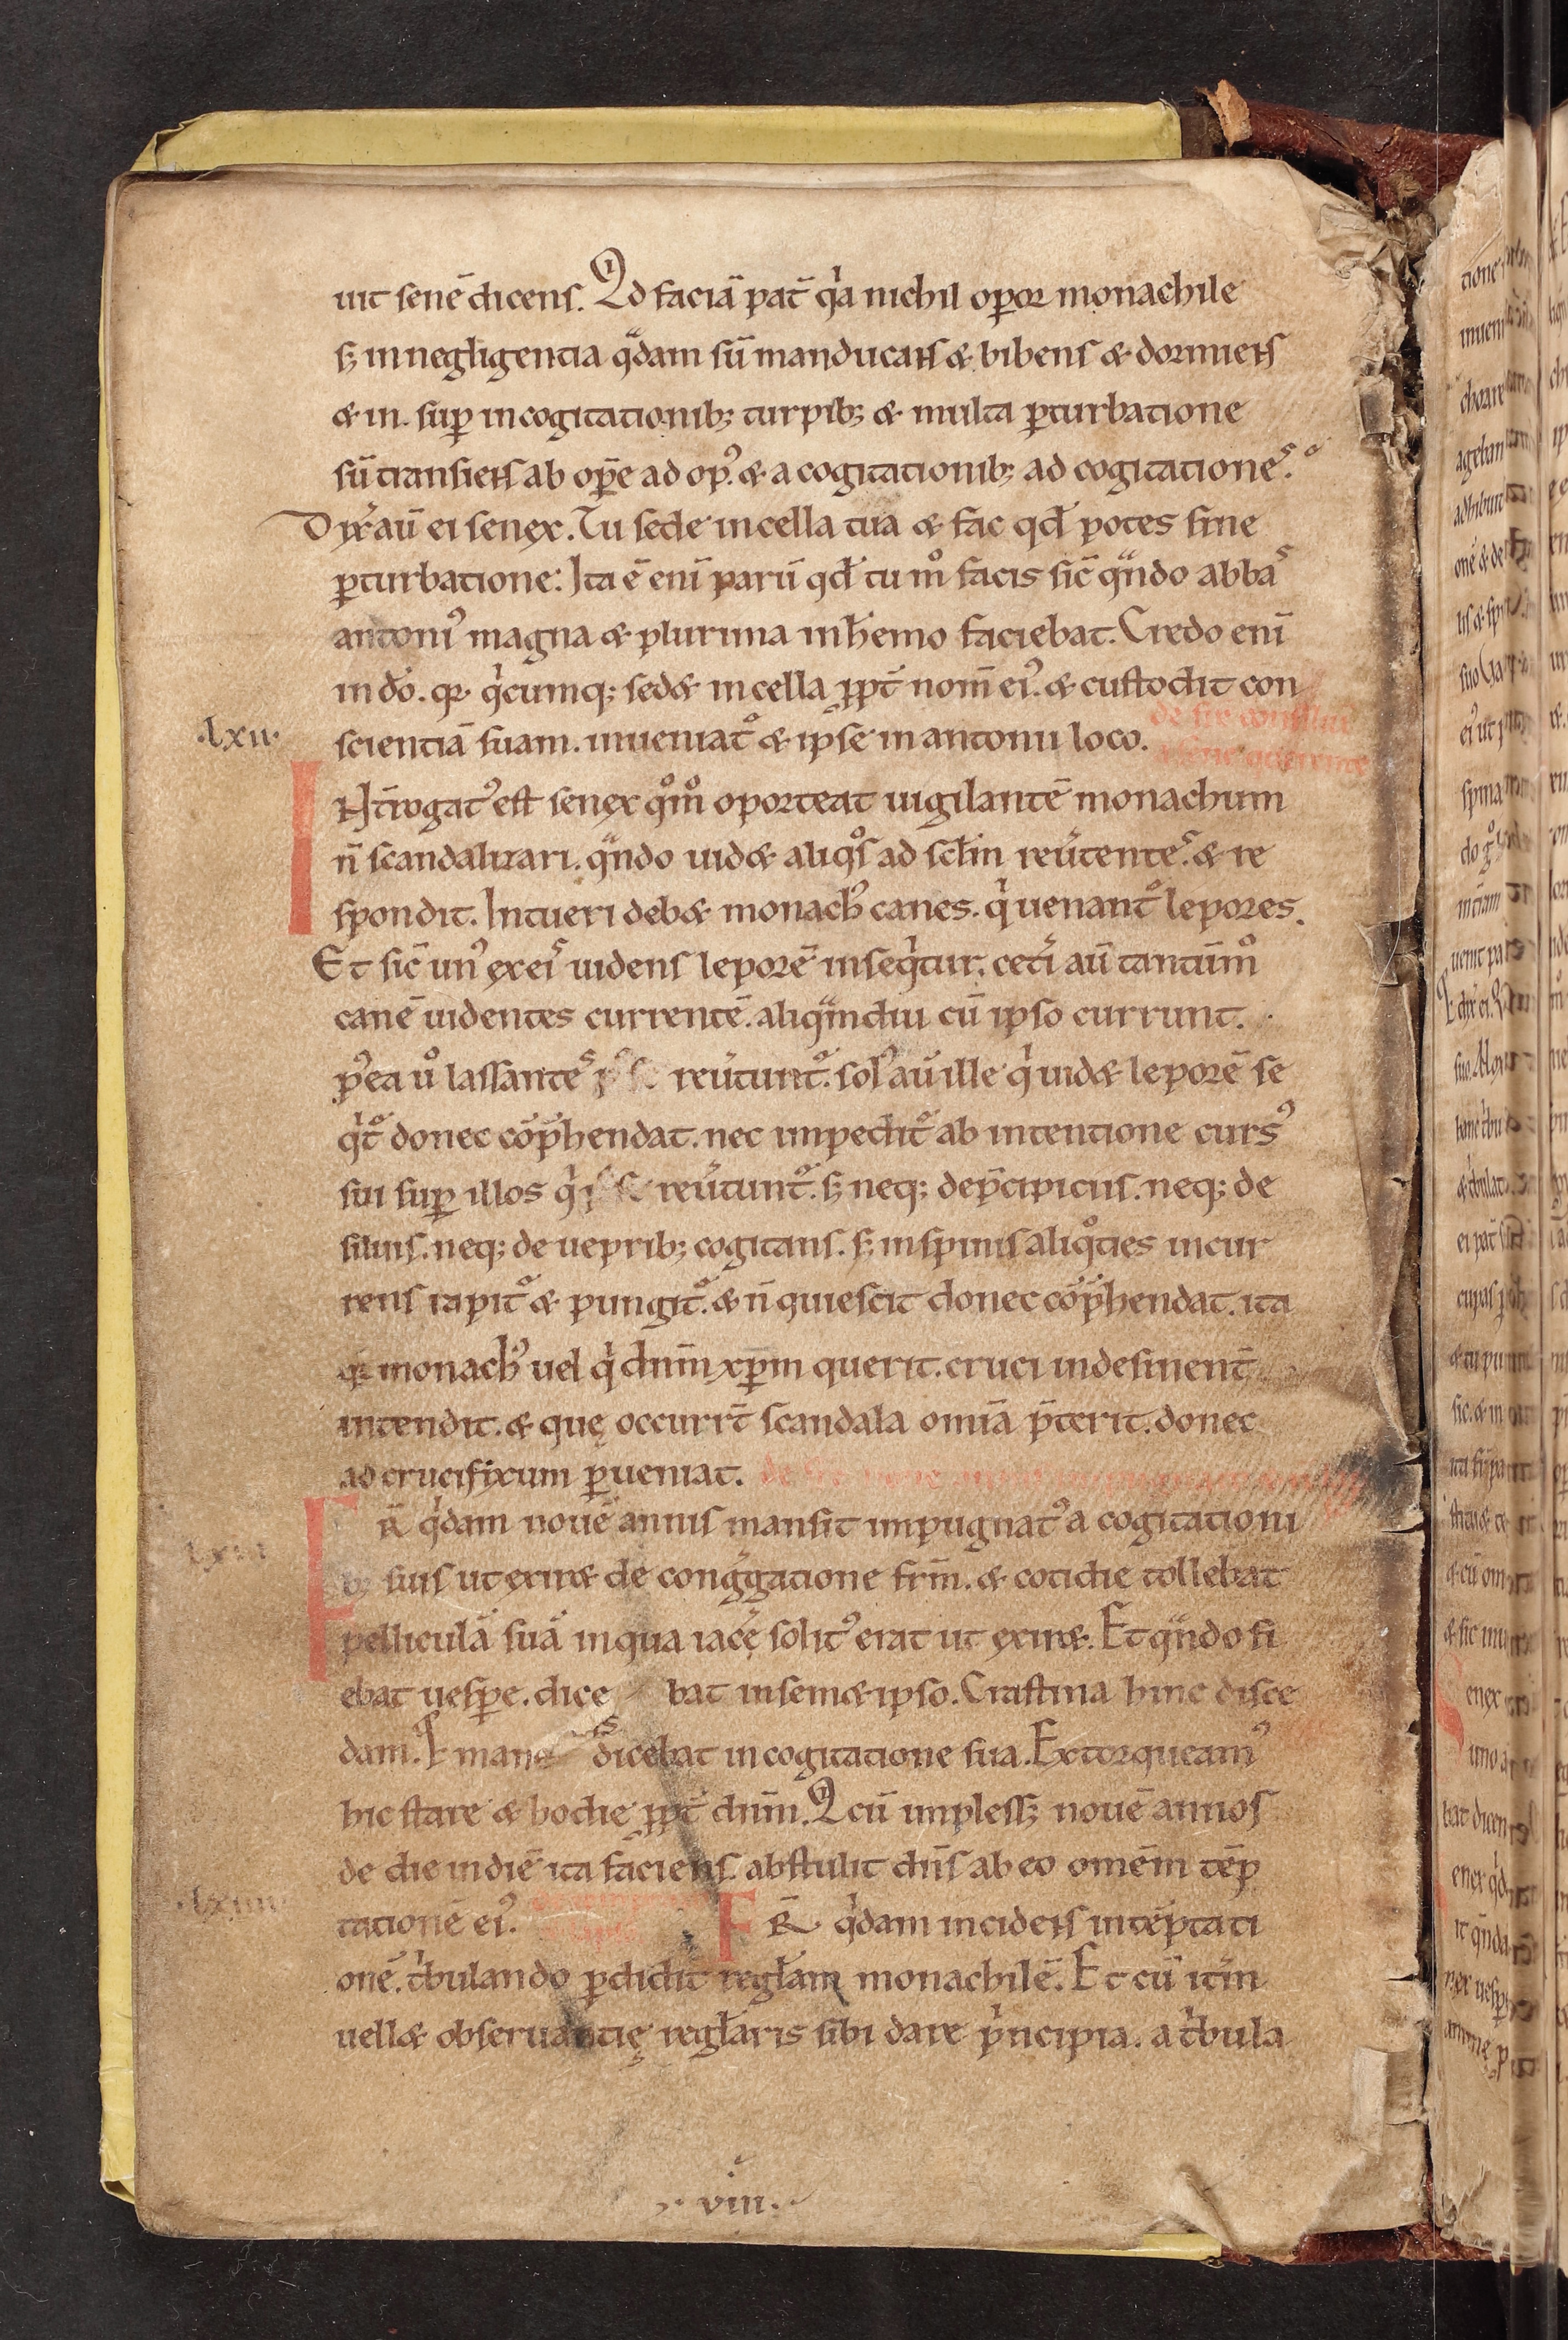 uit senē dicens. Qd faciā pat̄ qⁱa nichil oꝑor monachile
sꝫ in negligentia qᵃdam sū manducans & bibens & dormiens
& in. suꝑ in cogitationibꝫ turpibꝫ & multa ꝑturbatione
sū transiens ab oꝑe ad opꝰ. & a cogitationibꝫ ad cogitationeˢ.
Dix̄ aū ei senex. Tu sede in cella tua & fac qđ potes sine
ꝑturbatione: Ita ē eni̅ paru̅ qđ tu mº facis sic̄ qᵃndo abbaˢ
antoniꝰ magna & plurima in h̄emo faciebat. Credo eni̅
in do̅. qꝛ qⁱcumqꝫ sed& in cella ꝓpt̄ nom̄ eiꝰ. & custodit con
scientiā suam. inueniat᷑ & ipse in antonii loco.
.lxii.
INt̄rogatꝰ est senex qºmº oporteat uigilantē monachum
n̄ scandalizari. qᵃndo uid& aliqºs ad sc̄lm reu͛tenteˢ. & re
spondit. Intueri deb& monachꝰ canes. qⁱ uenant᷑ lepores.
Et sic̄ unꝰ ex eiˢ uidens leporē inseqⁱtur. cet͛i aū tantūmº
canē uidentes currentē. aliqᵃndiu cū ipso currunt.
pꝰea uº lassanteˢ reu͛tunt᷑. solꝰ aū ille qⁱ uid& leporē se
qⁱt᷑ donec co̅p̄hendat. nec impedit᷑ ab intentione cursꝰ
sui suꝑ illos qⁱ reu͛tunt᷑. sꝫ neqꝫ de p̄cipiciis. neqꝫ de
siluis. neqꝫ de ueprib; cogitans. sꝫ in spinis aliqºties incur
rens rapit᷑ & pungit᷑. & n̄ quiescit donec co̅p̄hendat. ita
qꝫ monachꝰ uel qⁱ dnm̄ xp̄m querit. cruci indesinent̄
intendit. & quę occurrt̄ scandala om̄ia p̄terit. donec
ad crucifixum ꝑueniat.
FR̄ qⁱdam nouē annis mansit impugnatꝰ a cogitationi
bꝫ suis ut exir& de cong͛gatione fr̄m. & cotidie tollebat
pelliculā suā in qua iac͛ę solitꝰ erat ut exir&. Et qᵃndo fi
ebat uesꝑe. dice bat in sem& ipso. Crastina hinc disce
dam. & mane dicebat in cogitatione sua. Extorqueamꝰ
hic stare & hodie ꝓpt̄ dnm̄. Qcū implessꝫ nouē annos
de die in diē ita faciens. abstulit dn̄s ab eo omēm tēp
tationē eiꝰ. FR̄ qⁱdam incidens in tēptati
onē. tⁱbulando ꝑdidit reglam monachilē. Et cū it͛m
uell& obseruantię reglaris sibi dare pⁱncipia. a tⁱbula
.viii.